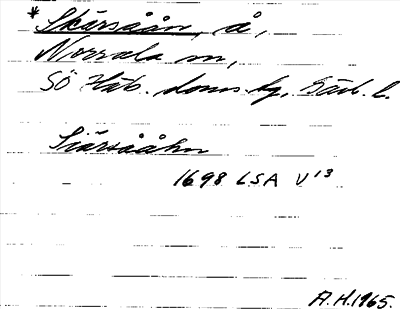 *Skärsåån, å,
Norrala sn,
SÖ Häls. doms. bg, Gävl. l.
Siärsååhn
1698 LSA V 13
A.H. 1965.